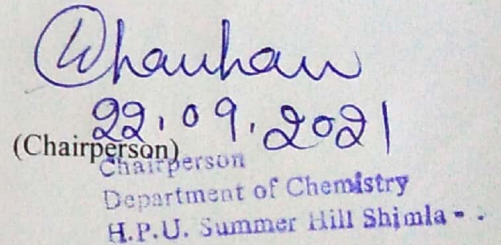 Chauhan
22.09.2021
(Chairperson)
Chairperson
Department of Chemistry
H.P.U. Summer Hill Shimla - .